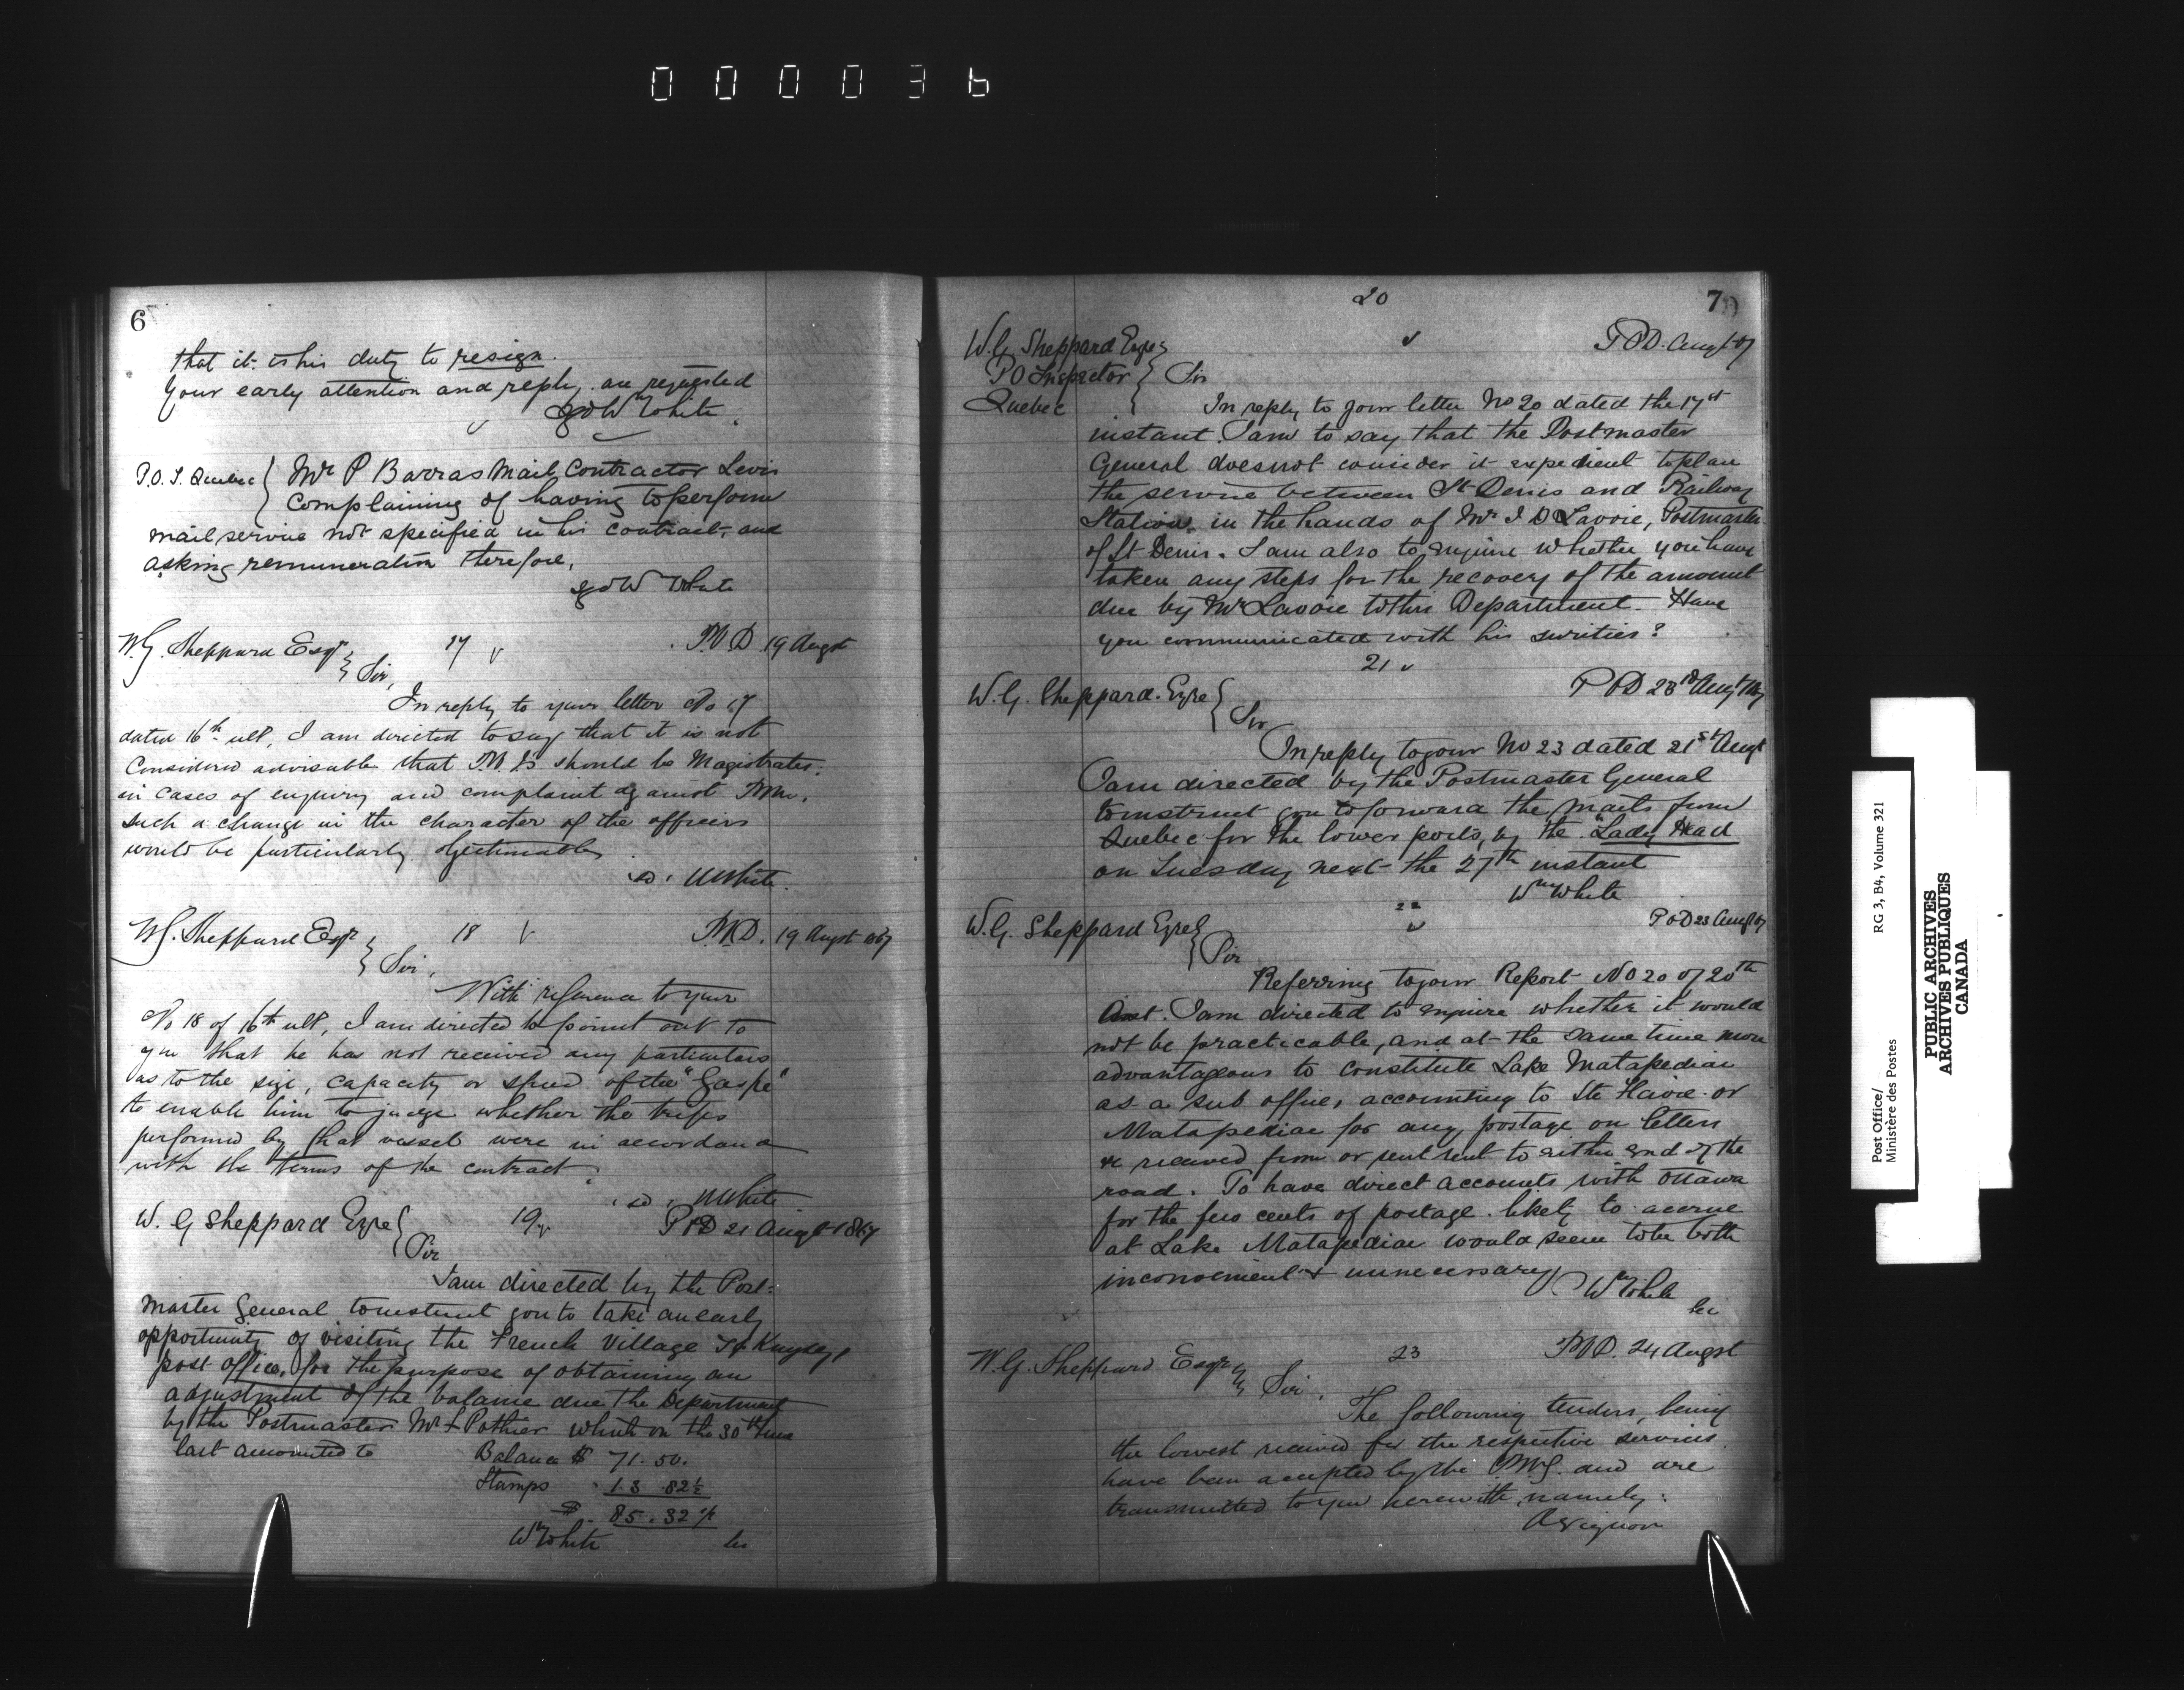 000036
6
that it is his duty to resign.
Your early attention and reply are requested
sgd W White
P.O.I. Quebec } Mr P Barras Mail Contractor Levis
Complaining of having to perform
mail service not specified in his contract, and
asking remuneration therefore,
sgd W White
W.G. Sheppard Esqr 17 P.O.D 19 Augst
Sir,
In reply to your letter No 17
dated 16th ult, I am directed to say that it is not
Considered advisable that P.O. Is should be Magistrates.
in cases of enquiry and complaint against
such a change in the character of the officers
would be particularly objectionable
sd. W White.
W.G. Sheppard Esqr 18 P.O.D. 19 Augst 1867
Sir,
With reference to your
No 18 of 16th ult, I am directed to point out to
you that he has not received any particulars
as to the size, capacity or speed of the "Gaspé"
to enable him to judge whether the trips
performed by that vessel were in accordance
with the terms of the contract.
sd. W White
W. G Sheppard Eqre 19 P O D 21 Augst 1867
Sir
I am directed by the Post-
master General to instruct you to take an early
opportunity of visiting the French Village
post office, for the purpose of obtaining an
adjustment of the balance due the Department
by the Postmaster Mr Pothier which on the 30th June
last amounted to Balance $ 71.50.
Stamps 13.82½
$ 85.32½
Wm White
20
7
W.G. Sheppard Eqre P O D. Augt 67
P O Inspector } Sir
Quebec
In reply to your letter No 20 dated the 17st
instant. I am to say that the Postmaster
General does not consider it expedient to place
the service between St Denis and Railway
Station in the hands of Mr I D Lavoie, Postmaster
of St Denis. I am also to enquire whether you have
taken any steps for the recovery of the amount
due by Mr Lavoie to this Department. Have
you communicated with his surities?
21
W.G. Sheppard. Eqre P O D 23rd Augt 67
Sir
In reply to your No 23 dated 21st Augt
I am directed by the Postmaster General
to instruct you to forward the mails from
Quebec for the lower ports, by the "Lady Head
on Tuesday next the 27th instant
Wm White
22
W.G. Sheppard Eqre P O D 23 Augt 67
Sir
Referring to your Report No 20 of 20th
Inst. I am directed to enquire whether it would
not be practicable, and at the same time more
advantageous to constitute Lake Matapediac
as a sub office, accounting to Ste Flavie or
Matapediac for any postage on letters
&c received from or sent sent to either end of the
road. To have direct accounts with Ottawa
for the few cents of postage likely to accrue
at Lake Matapediac would seem to be both
inconvenient & unnecessary
Wm White
Sec
W.G. Sheppard Esqre 23 P.O.D. 24 Augst
Sir,
The following tenders, being
the lowest received for the respective services
have been accepted by the P.M.G. and are
transmitted to you herewith, namely:
Avignon
Post Office/
Ministère des Postes
RG 3, B4, Volume 321
PUBLIC ARCHIVES
ARCHIVES PUBLIQUES
CANADA